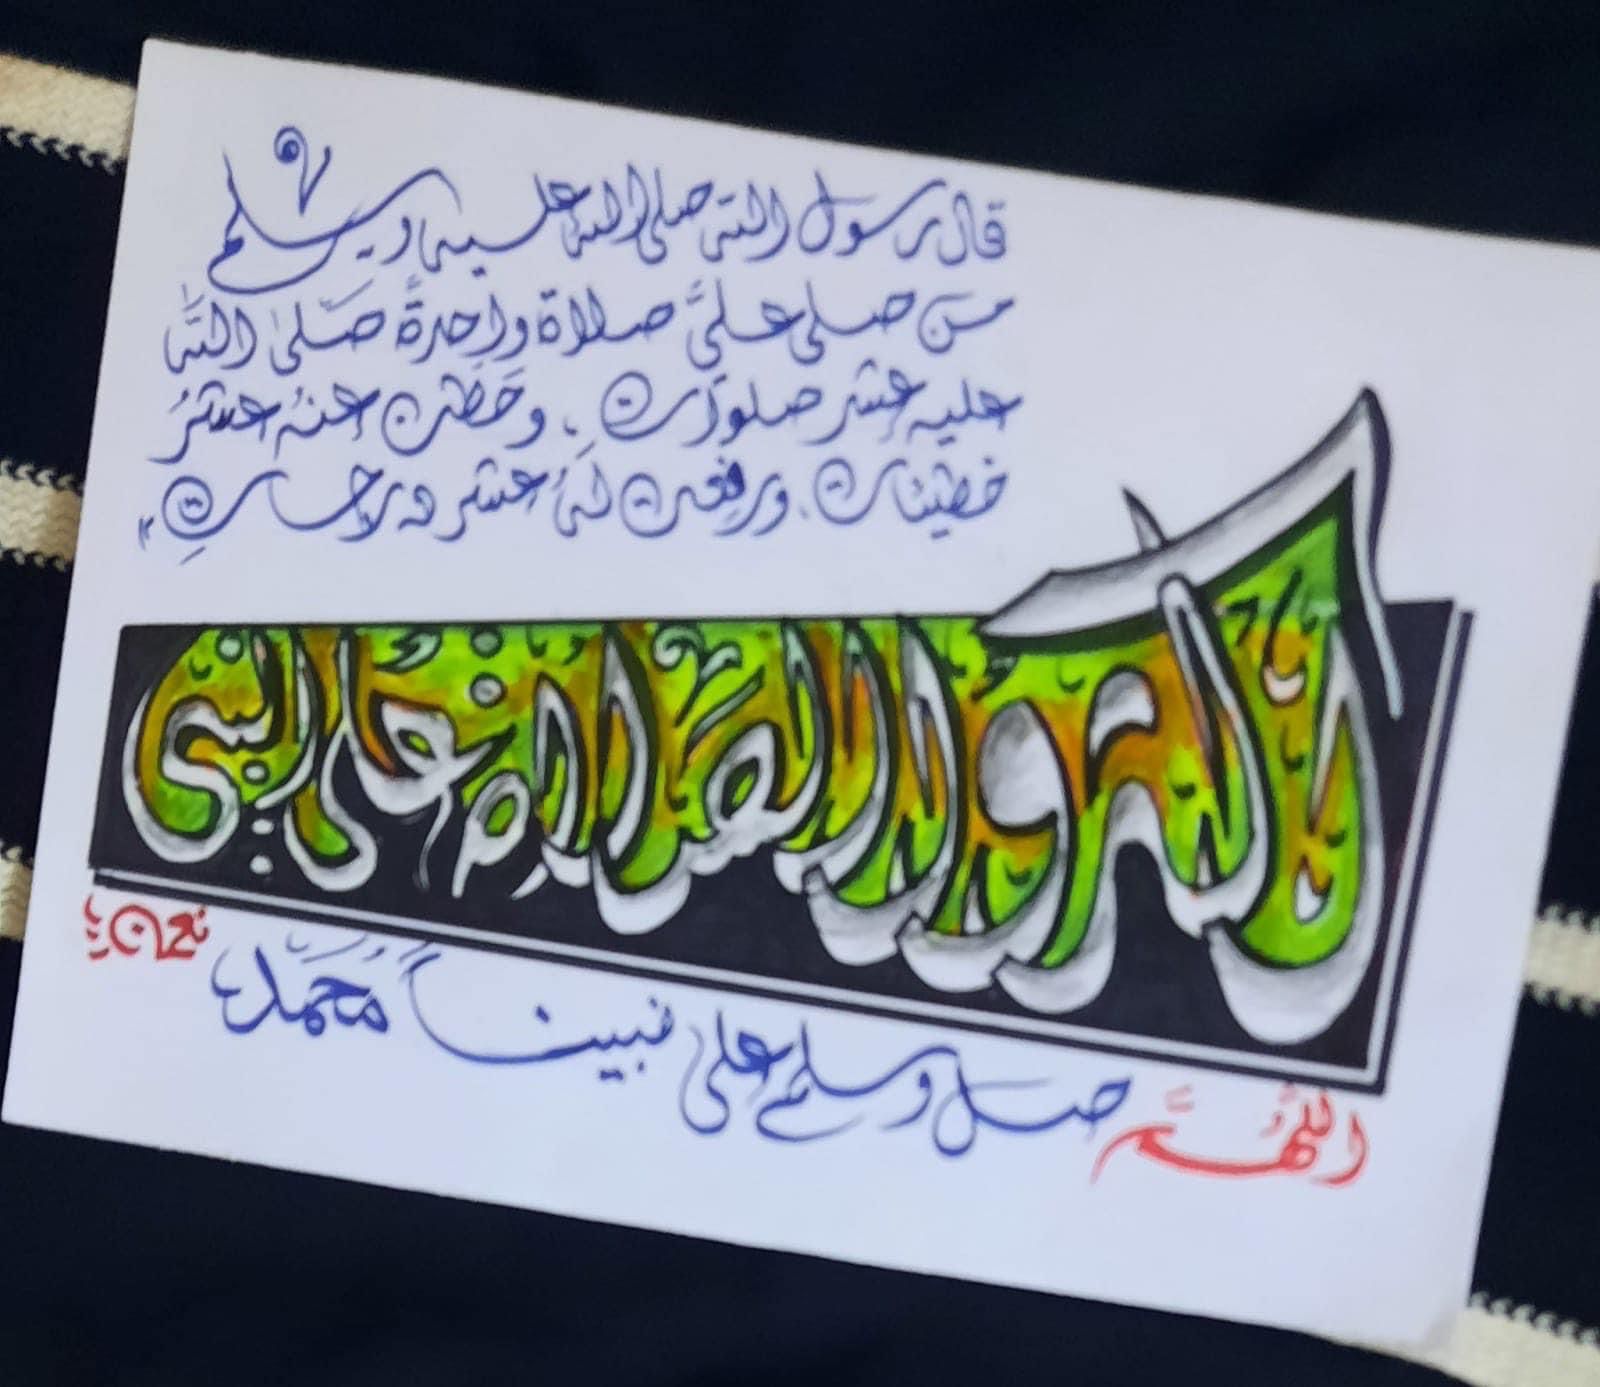 قال رسول الله صلى الله عليه وسلم
من صلى عليَّ صلاة واحدةً صَلىٰ اللَّه
عليه عشر صلوات، وحُطت عنهُ عشرُ
خطيئات، ورفعت لهُ عشر درجاتٍ
أكثروا الصلاة على النبي
اللَّهُمَّ صَل وسلم على نبيناَ مُحَمَّد